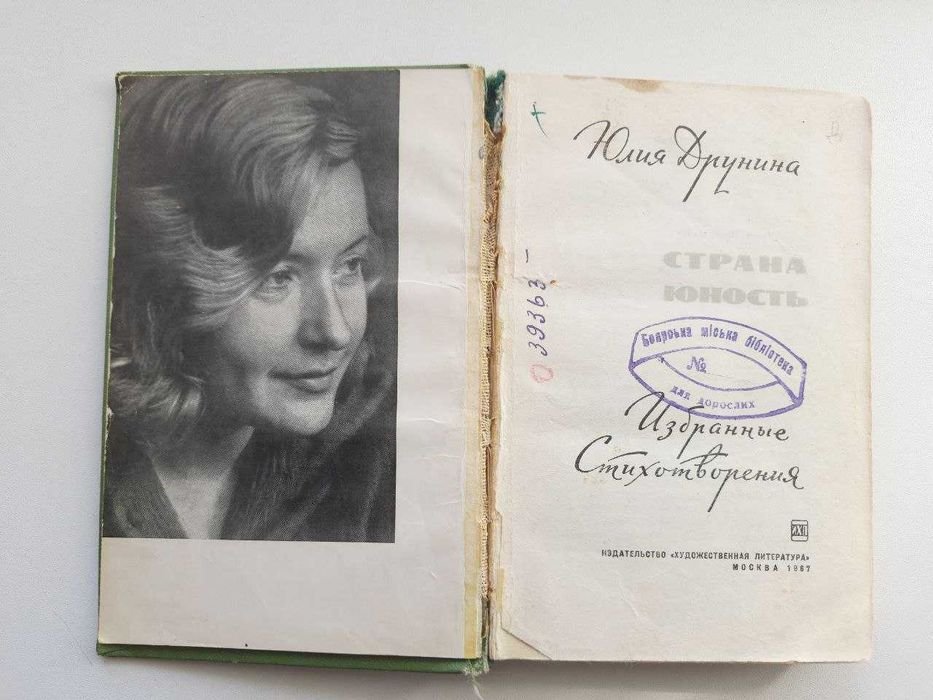 Юлия Друнина
СТРАНА
ЮНОСТЬ
39363 –
Боярська міська бібліотека
№
для дорослих
Избранные
Стихотворения
ИЗДАТЕЛЬСТВО «ХУДОЖЕСТВЕННАЯ ЛИТЕРАТУРА»
МОСКВА 1967